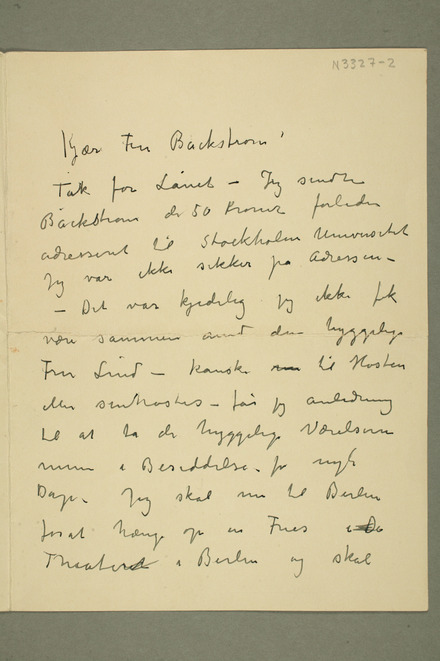 N3327-2
Kjær Fru Backstrøm!
Tak for Lånet – Jeg sendte
Backstrøm de 50 Kroner forleden
adresseret til Stockholm Universitet
Jeg var ikke sikker på Adressen –
– Det var kjedelig jeg ikke fik
være sammen med den hyggelige
Fru Lind – kanske til Høsten
eller senhøstes – får jeg anledning
til at ta de hyggelige Værelserne
mine i Besiddelse – for nogle
Dage. Jeg skal nu til Berlin
forat hænge op en Fries
Theatret i Berlin og skal